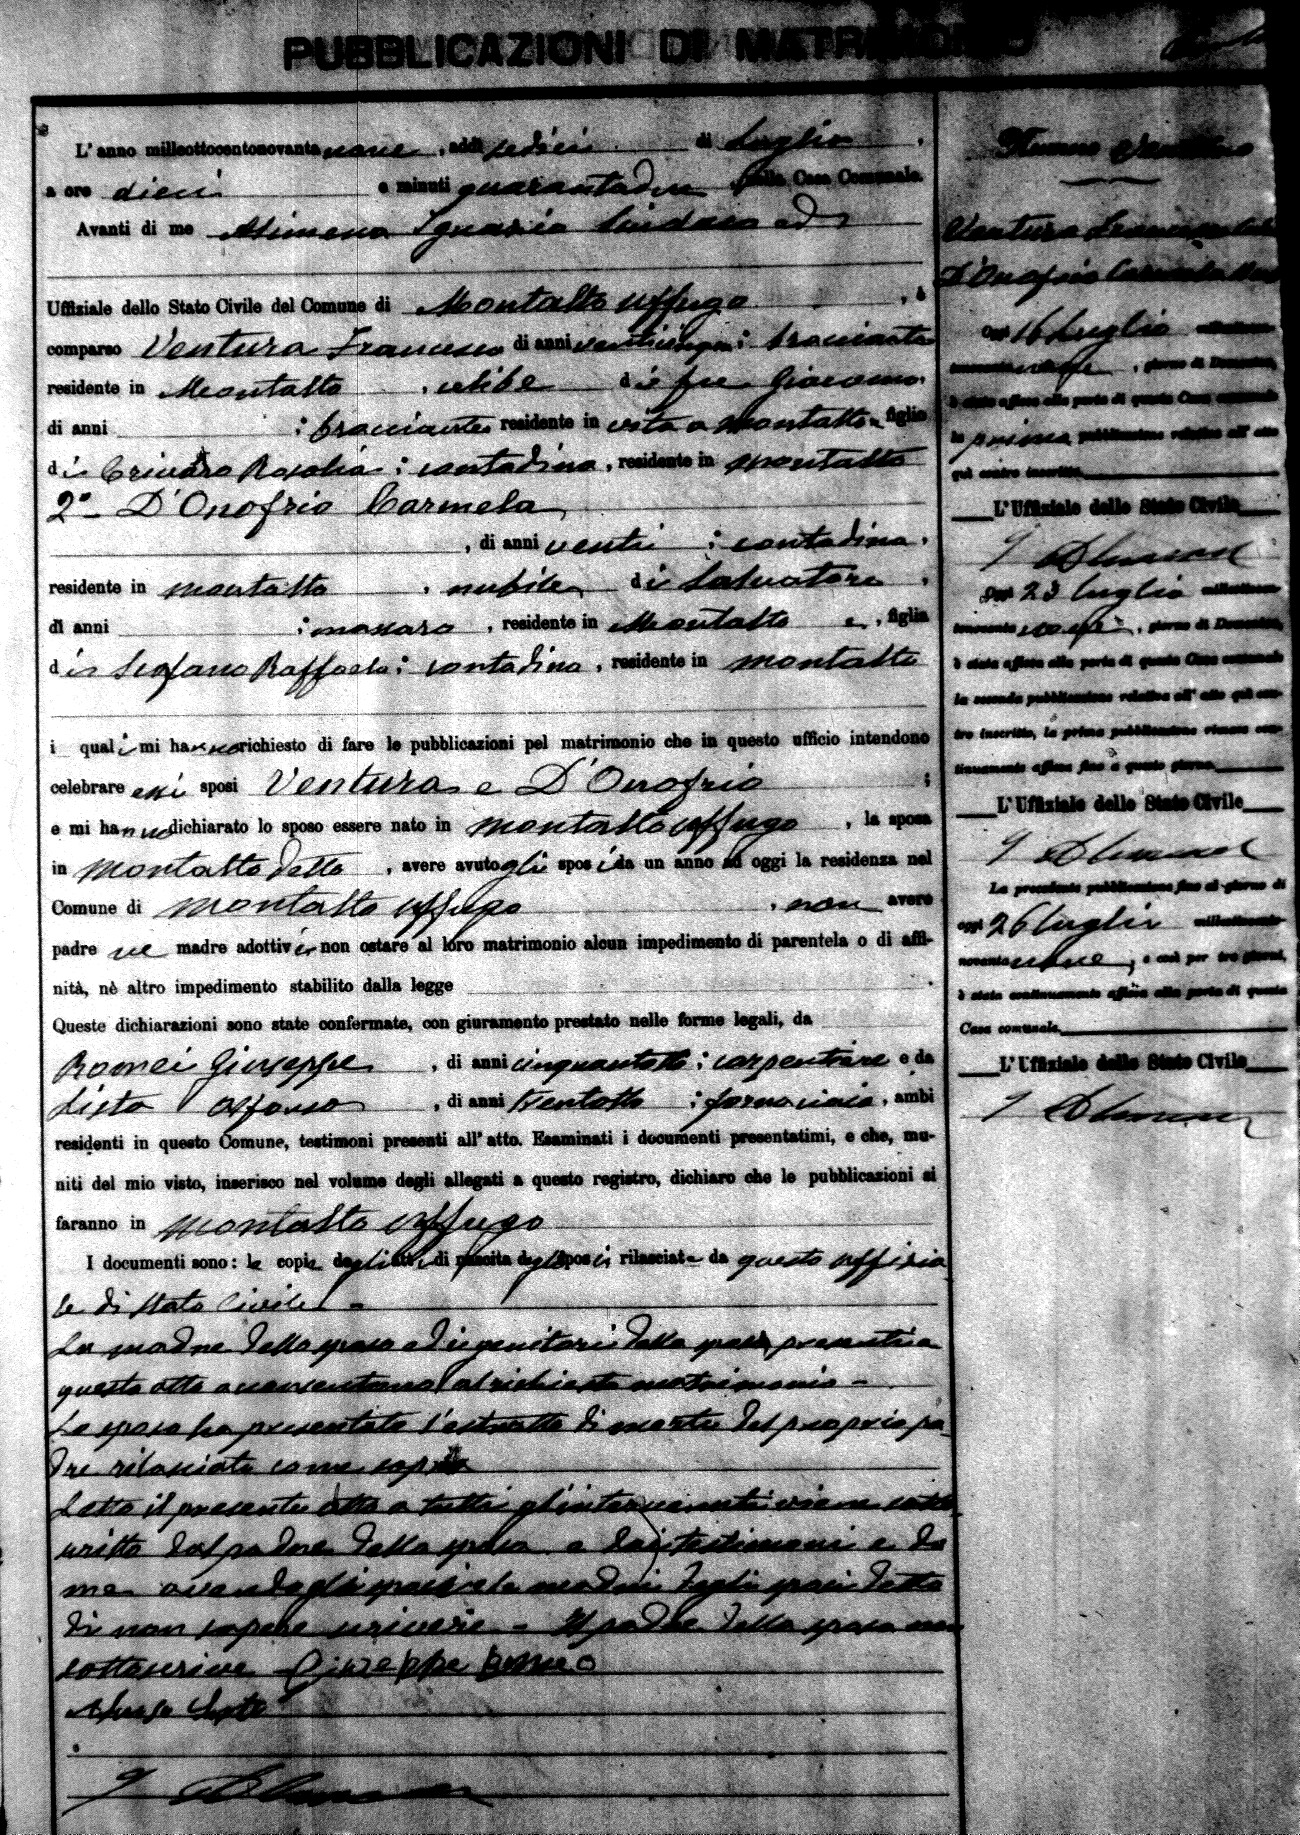 PUBBLICAZIONI DI MATRIMONIO
L'anno milleottocentonovantanove, addì sedici di Luglio,
a ore dieci e minuti quarantadue, nella Casa Comunale.
Avanti di me Alimena Ignazio Sindaco ed
Uffiziale dello Stato Civile del Comune di Montalto Uffugo, è
comparso Ventura Francesco di anni venticinque; bracciante
residente in Montalto, celibe di fu Giacomo
di anni ; bracciante residente in vita a Montalto e figlio
di Crivaro Rosalia; contadina, residente in Montalto
2° D'Onofrio Carmela
, di anni venti; contadina,
residente in Montalto, nubile di Salvatore,
di anni ; massaro, residente in Montalto e, figlia
di Scofano Raffaela; contadina, residente in Montalto
i quali mi hanno richiesto di fare le pubblicazioni pel matrimonio che in questo ufficio intendono
celebrare essi sposi Ventura e D'Onofrio ;
e mi hanno dichiarato lo sposo essere nato in Montalto Uffugo, la sposa
in Montalto detto, avere avuto gli sposi da un anno ad oggi la residenza nel
Comune di Montalto Uffugo, non avere
padre ne madre adottivi e non ostare al loro matrimonio alcun impedimento di parentela o di affi-
nità, nè altro impedimento stabilito dalla legge .
Queste dichiarazioni sono state confermate, con giuramento prestato nelle forme legali, da
Romei Giuseppe, di anni cinquantotto; carpentiere e da
Lioto Alfonso, di anni trentotto; fornaciaio, ambi
residenti in questo Comune, testimoni presenti all'atto. Esaminati i documenti presentatimi, e che, mu-
niti del mio visto, inserisco nel volume degli allegati a questo registro, dichiaro che le pubblicazioni si
faranno in Montalto Uffugo
I documenti sono: le copie degli atti di nascita degli sposi rilasciate da questo uffizia
le di Stato Civile -
La madre dello sposo ed i genitori della sposa presenti a
questo atto acconsentono al richiesto matrimonio -
Lo sposo ha presentato l'estratto di morte del proprio pa
dre rilasciato come sopra
Letto il presente atto a tutti gl'intervenuti viene sotto
scritto dal padre della sposa e dai testimoni e da
me avendo gli sposi e le madri degli sposi detto
di non sapere scrivere - Il padre della sposa non
sottoscrive Giuseppe Romeo
Alfonso
I Alimena
Numero
Ventura Francesco
D'Onofrio Carmela
Oggi 16 Luglio milleottocento-
novantanove, giorno di Domenica,
è stata affissa alla porta di questa Casa comunale
la prima pubblicazione relativa all'atto
quì contro inscritto.
L'Uffiziale dello Stato Civile
I Alimena
Oggi 23 luglio milleottocento-
novantanove, giorno di Domenica,
è stata affissa alla porta di questa Casa comunale
la seconda pubblicazione relativa all'atto quì con-
tro inscritto, la prima pubblicazione rimase con-
tinuamente affissa fino a questo giorno.
L'Uffiziale dello Stato Civile
I Alimena
La precedente pubblicazione fino al giorno di
oggi 26 luglio milleottocento-
novantanove, e così per tre giorni,
è stata continuamente affissa alla porta di questa
Casa comunale.
L'Uffiziale dello Stato Civile
I Alimena